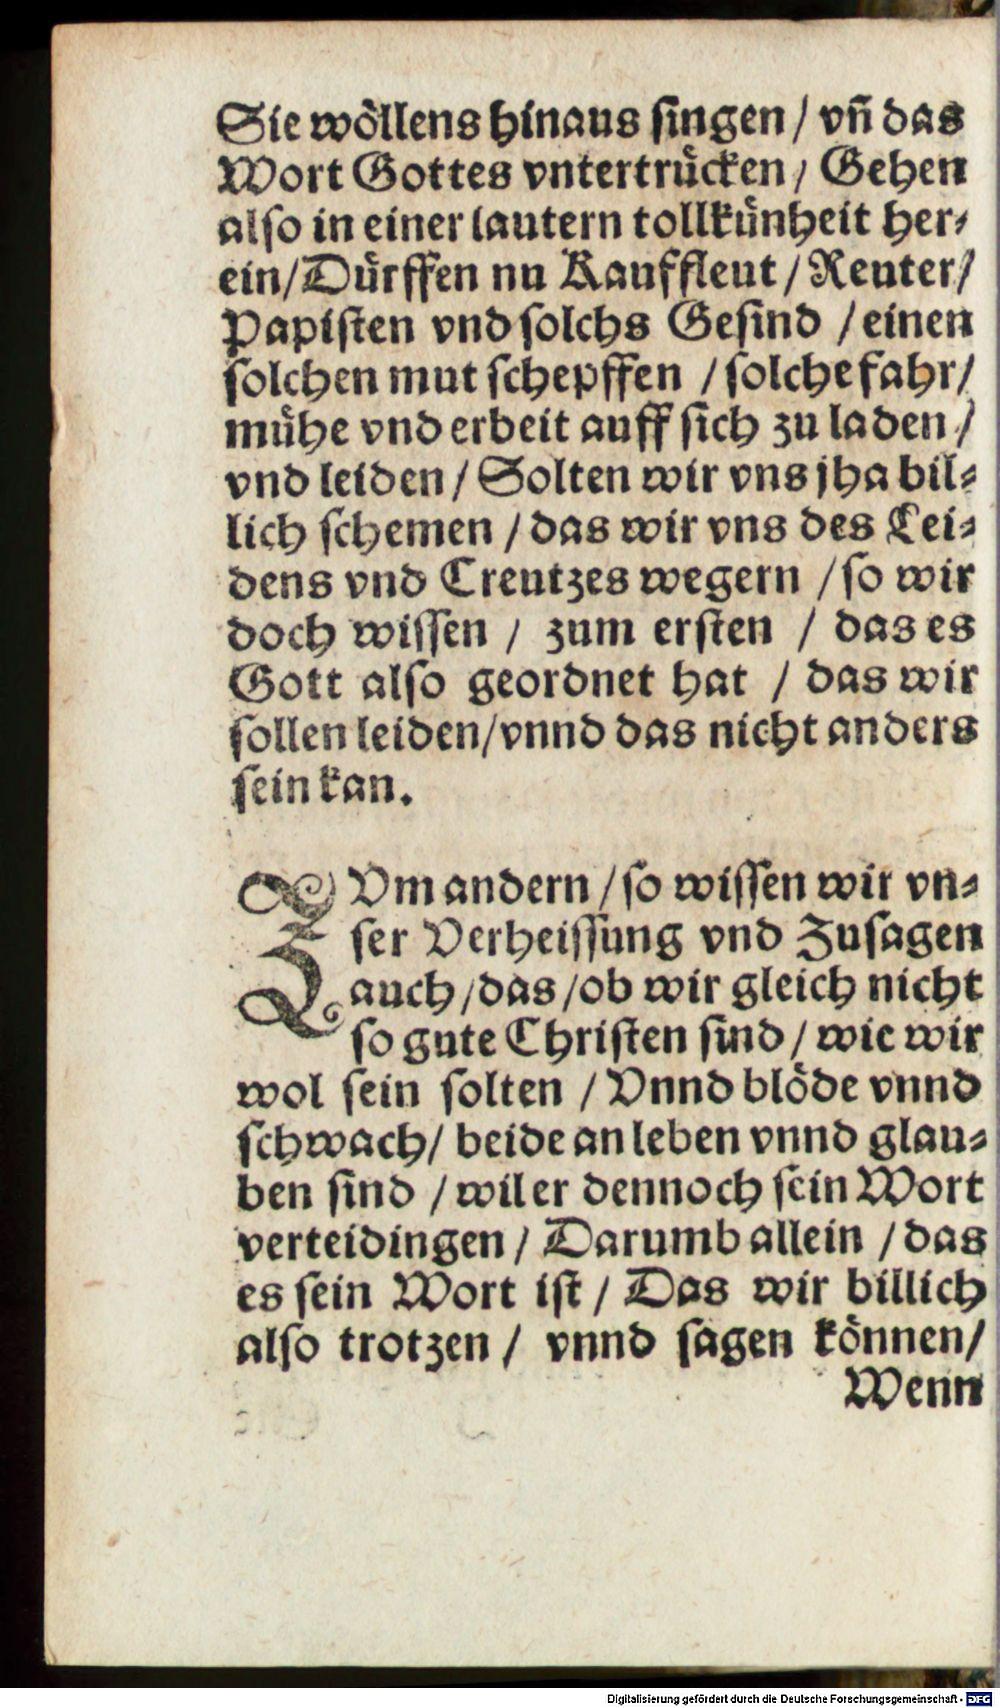 Sie wöllens hinaus singen / vn̄ das
Wort Gottes vntertrücken / Gehen
also in einer lautern tollkünheit her⸗
ein / Dürffen nu Kauffleut / Reuter /
Papisten vnd solchs Gesind / einen
solchen mut schepffen / solche fahr /
mühe vnd erbeit auff sich zu laden /
vnd leiden / Solten wir vns jha bil⸗
lich schemen / das wir vns des Lei⸗
dens vnd Creutzes wegern / so wir
doch wissen / zum ersten / das es
Gott also geordnet hat / das wir
sollen leiden / vnnd das nicht anders
sein kan.
ZVm andern / so wissen wir vn⸗
ser Verheissung vnd Zusagen
auch / das / ob wir gleich nicht
so gute Christen sind / wie wir
wol sein solten / Vnnd blöde vnnd
schwach / beide an leben vnnd glau⸗
ben sind / wil er dennoch sein Wort
verteidingen / Darumb allein / das
es sein Wort ist / Das wir billich
also trotzen / vnnd sagen können /
Wenn
Digitalisierung gefördert durch die Deutsche Forschungsgemeinschaft - DFG